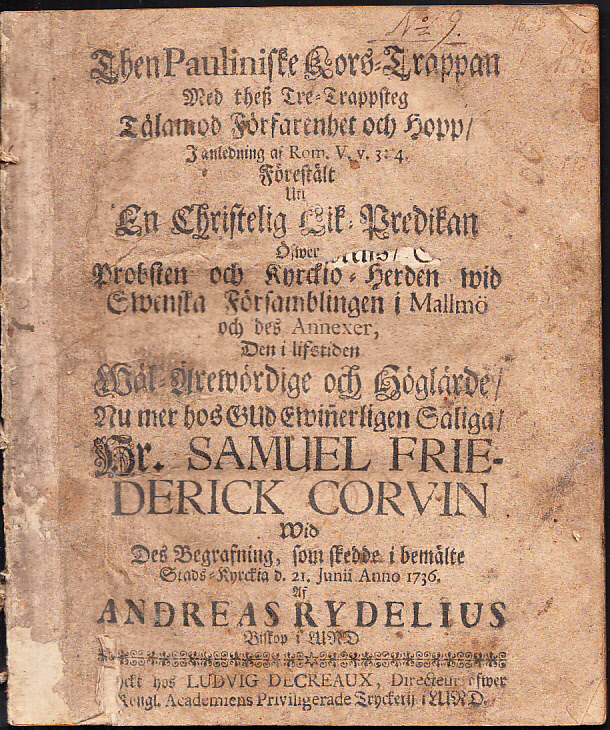 No 9.
Then Pauliniske Kors-Trappan
Med theß Tre-Trappsteg
Tålamod Förfarenhet och Hopp/
I anledning af Rom. V. v. 3: 4.
Förestält
Uti
En Christelig Lik-Predikan
Öfwer
Probsten och Kyrckio-Herden wid
Swenska Församblingen i Mallmö
och des Annexer,
Den i lifstiden
Wäl-Ärewördige och Höglärde/
Nu mer hos GUd Ewiñerligen Saliga/
Hr. SAMUEL FRIE-
DERICK CORVIN
Wid
Des Begrafning, som skedde i bemälte
Stads-Kyrckia d. 21. Junii Anno 1736.
Af
ANDREAS RYDELIUS
Biskop i LUND
yckt hos LUDVIG DECREAUX, Directeur öfwer
Kongl. Academiens Priviligerade Tryckerij i LUND.